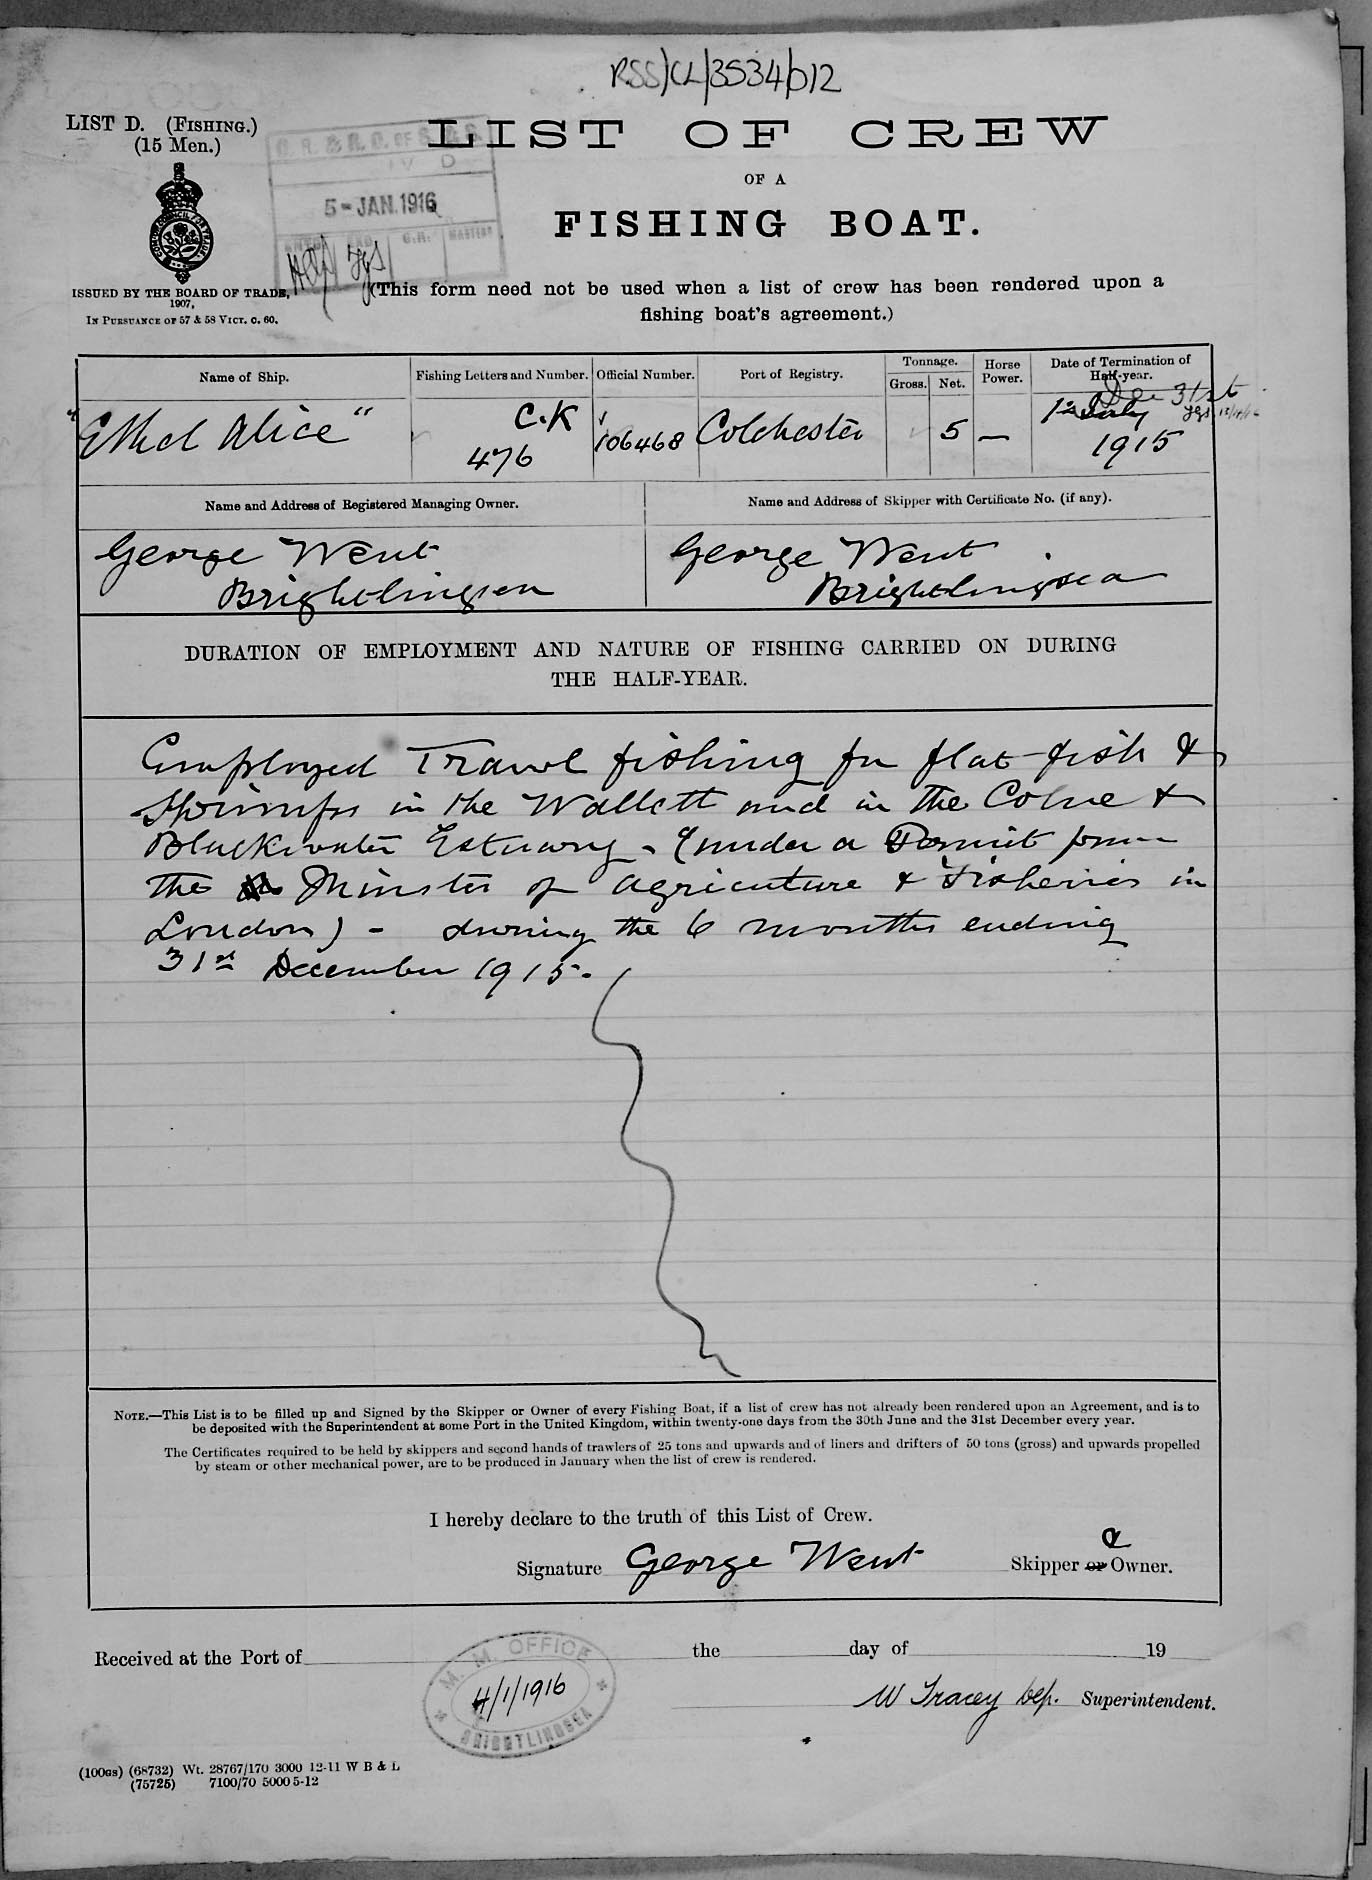 RSS/CL/3534/012
LIST D. (FISHING.)
(15 Men.)
5 - JAN. 1916
LIST OF CREW
OF A
FISHING BOAT.
ISSUED BY THE BOARD OF TRADE,
1907,
IN PURSUANCE OF 57 & 58 VICT. C. 60.
(This form need not be used when a list of crew has been rendered upon a
fishing boat's agreement.)
Name of Ship.
Fishing Letters and Number.
Official Number.
Port of Registry.
Tonnage.
Gross. Net.
Horse Power.
Date of Termination of Half-year.
"Ethel Alice"
C.K 476
106468
Colchester
5
—
Dec 31st
1st July
1915
Name and Address of Registered Managing Owner.
Name and Address of Skipper with Certificate No. (if any).
George Went
Brightlingsea
George Went
Brightlingsea
DURATION OF EMPLOYMENT AND NATURE OF FISHING CARRIED ON DURING
THE HALF-YEAR.
Employed Trawl fishing for flat fish &
Shrimps in the Wallett and in the Colne &
Blackwater Estuary - (under a Permit from
the Minster of Agriculture & Fisheries in
London) - during the 6 months ending
31st December 1915.
NOTE.—This List is to be filled up and Signed by the Skipper or Owner of every Fishing Boat, if a list of crew has not already been rendered upon an Agreement, and is to
be deposited with the Superintendent at some Port in the United Kingdom, within twenty-one days from the 30th June and the 31st December every year.
The Certificates required to be held by skippers and second hands of trawlers of 25 tons and upwards and of liners and drifters of 50 tons (gross) and upwards propelled
by steam or other mechanical power, are to be produced in January when the list of crew is rendered.
I hereby declare to the truth of this List of Crew.
Signature George Went Skipper or & Owner.
Received at the Port of the day of 19
M. M. OFFICE
4/1/1916
BRIGHTLINGSEA
W Tracey Dep. Superintendent.
(100GS) (68732) Wt. 28767/170 3000 12-11 W B & L
(75725) 7100/70 5000 5-12